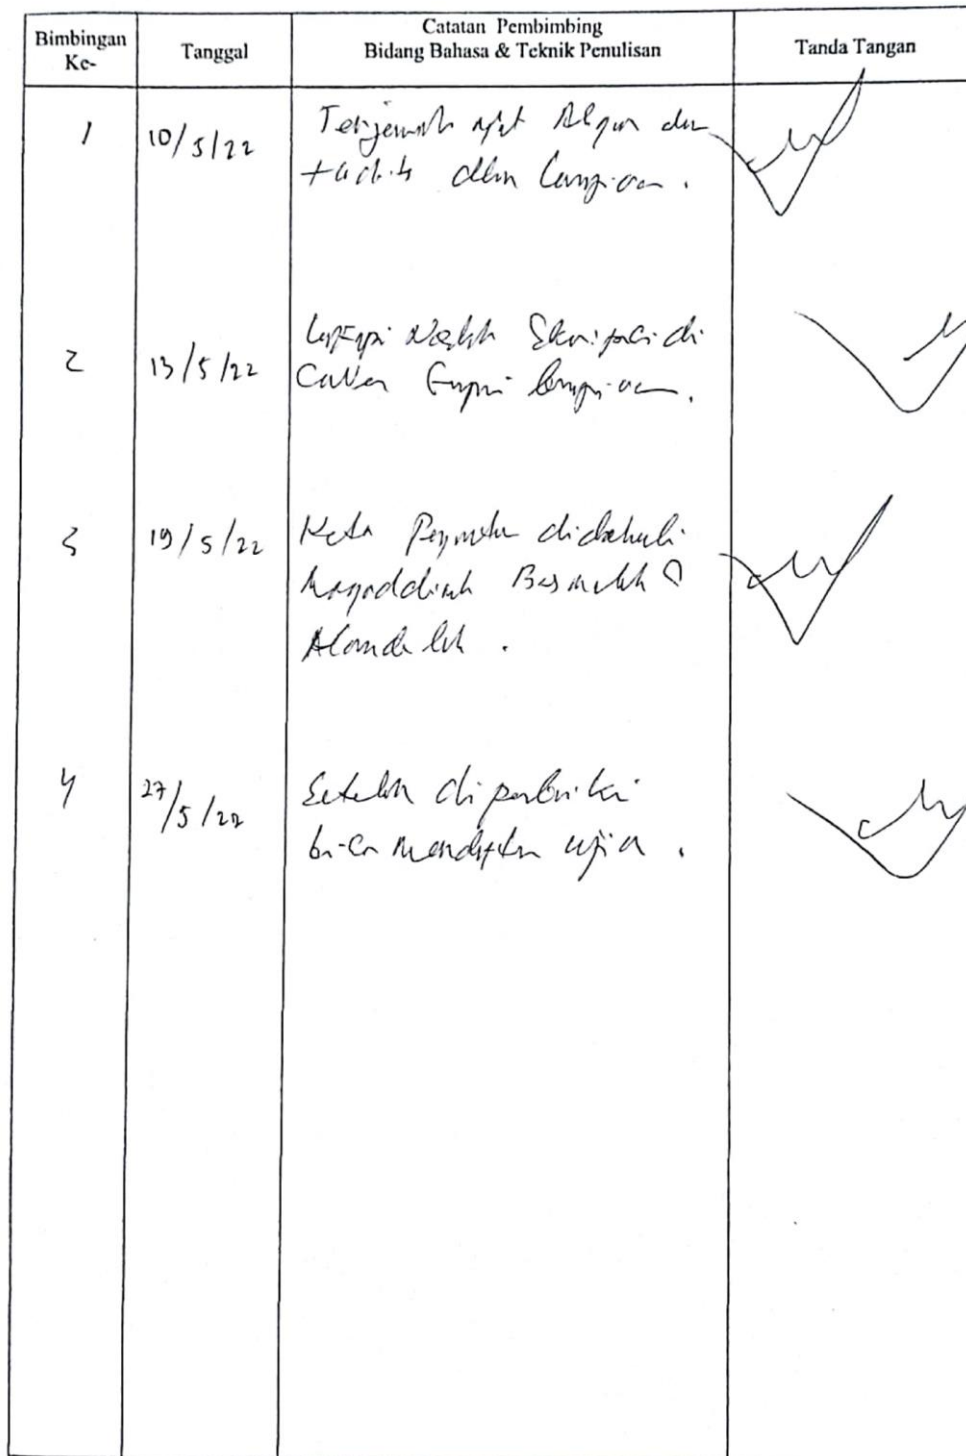 Bimbingan Ke-
Tanggal
Catatan Pembimbing
Bidang Bahasa & Teknik Penulisan
Tanda Tangan
1
10/5/22
Terjemah ayat Alqur dan
hadits dlm lampiran.
2
13/5/22
Lengkapi Naskah Skripsi di
Cover sampai lampiran.
3
19/5/22
Kata Pengantar didahului
Muqaddimah Basmalah &
Alamdalah.
4
27/5/22
Setelah diperbaiki
bisa mendaftar ujian.